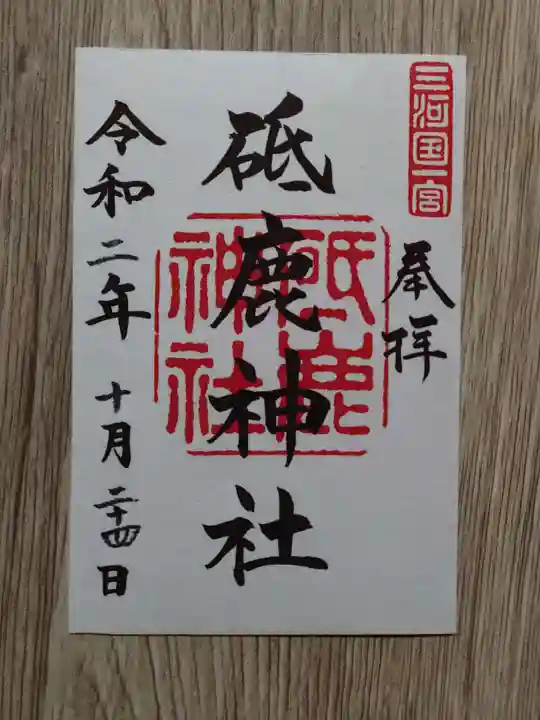 三河国一宮
奉拝
砥鹿神社
砥鹿神社
令和二年十月二十四日